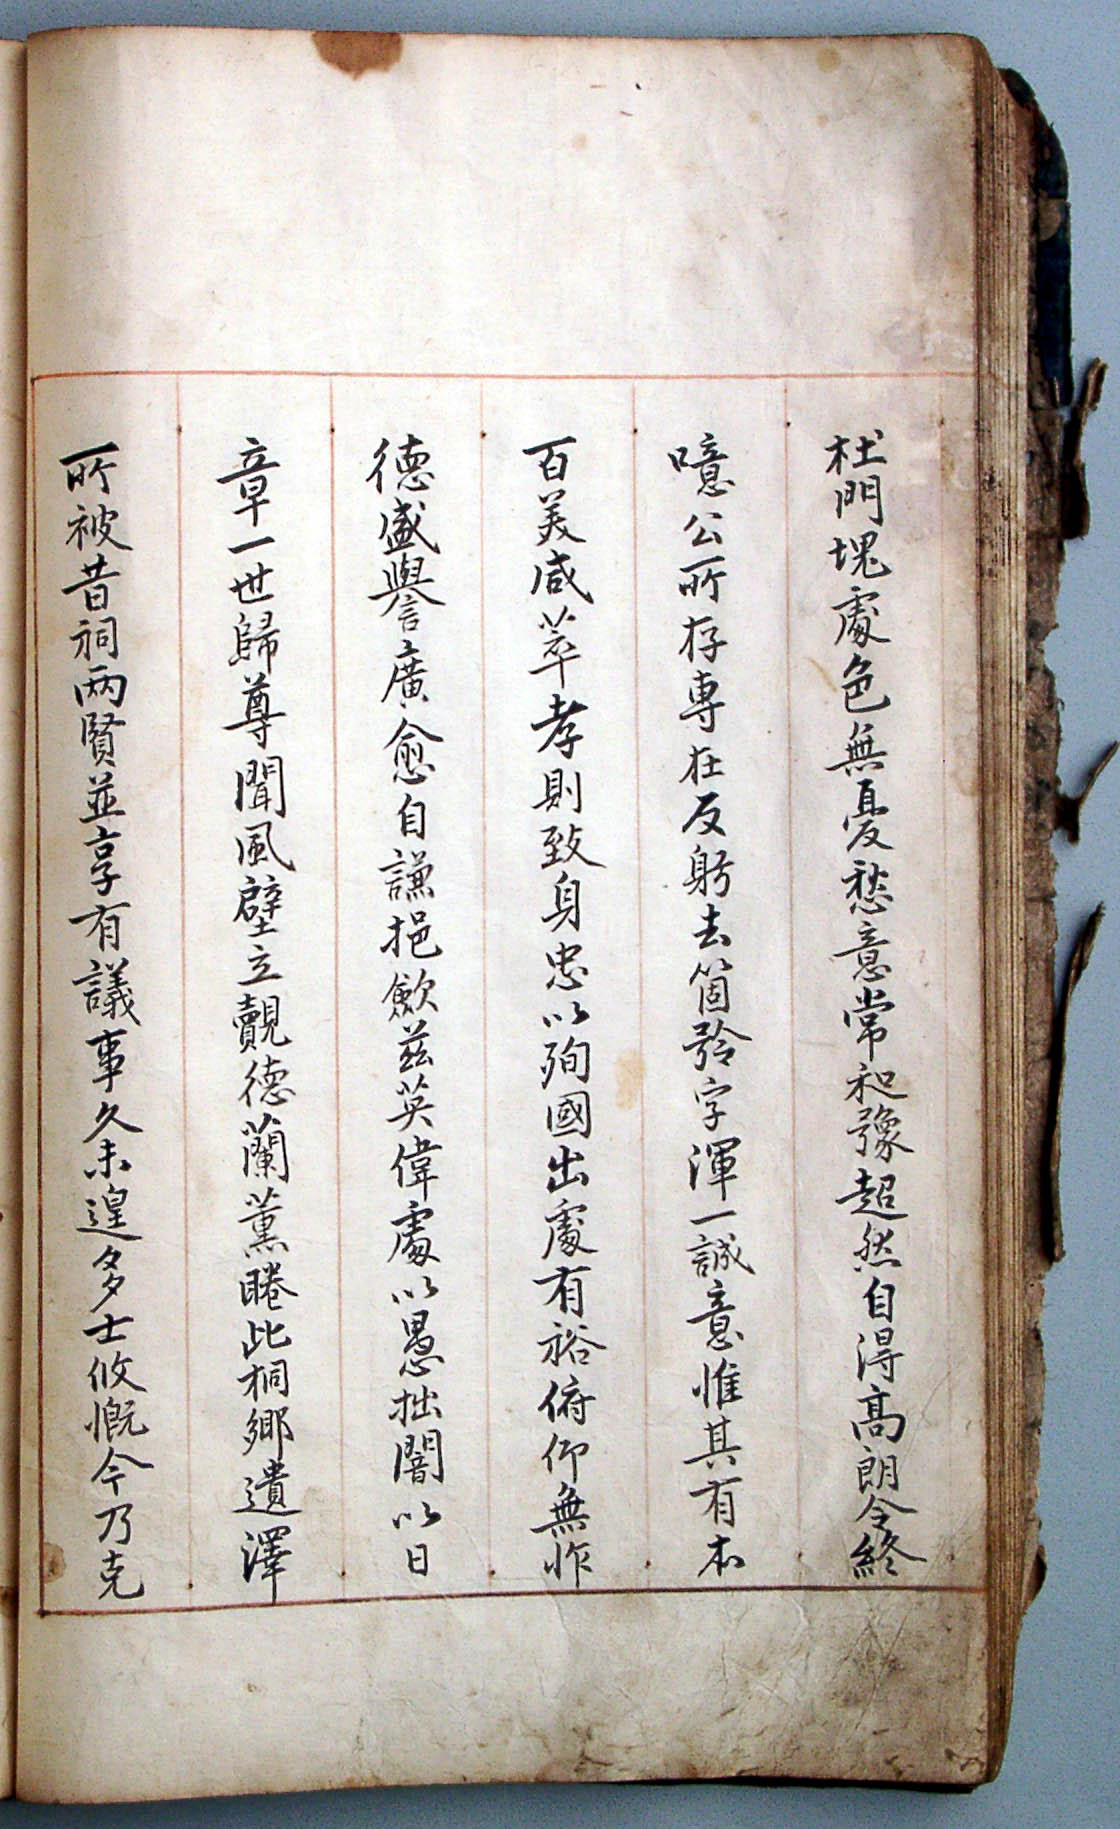 杜門塊處色無憂愁意常和豫超然自得高朗令終
噫公所存專在反躬去箇矜字渾一誠意惟其有本
百美咸萃孝則致身忠以殉國出處有裕俯仰無怍
德盛譽廣愈自謙挹歛茲英偉處以愚拙闇以日
章一世歸尊聞風壁立覿德蘭薰睠此桐鄉遺澤
所被昔祠兩賢並享有議事久未遑多士攸慨今乃克